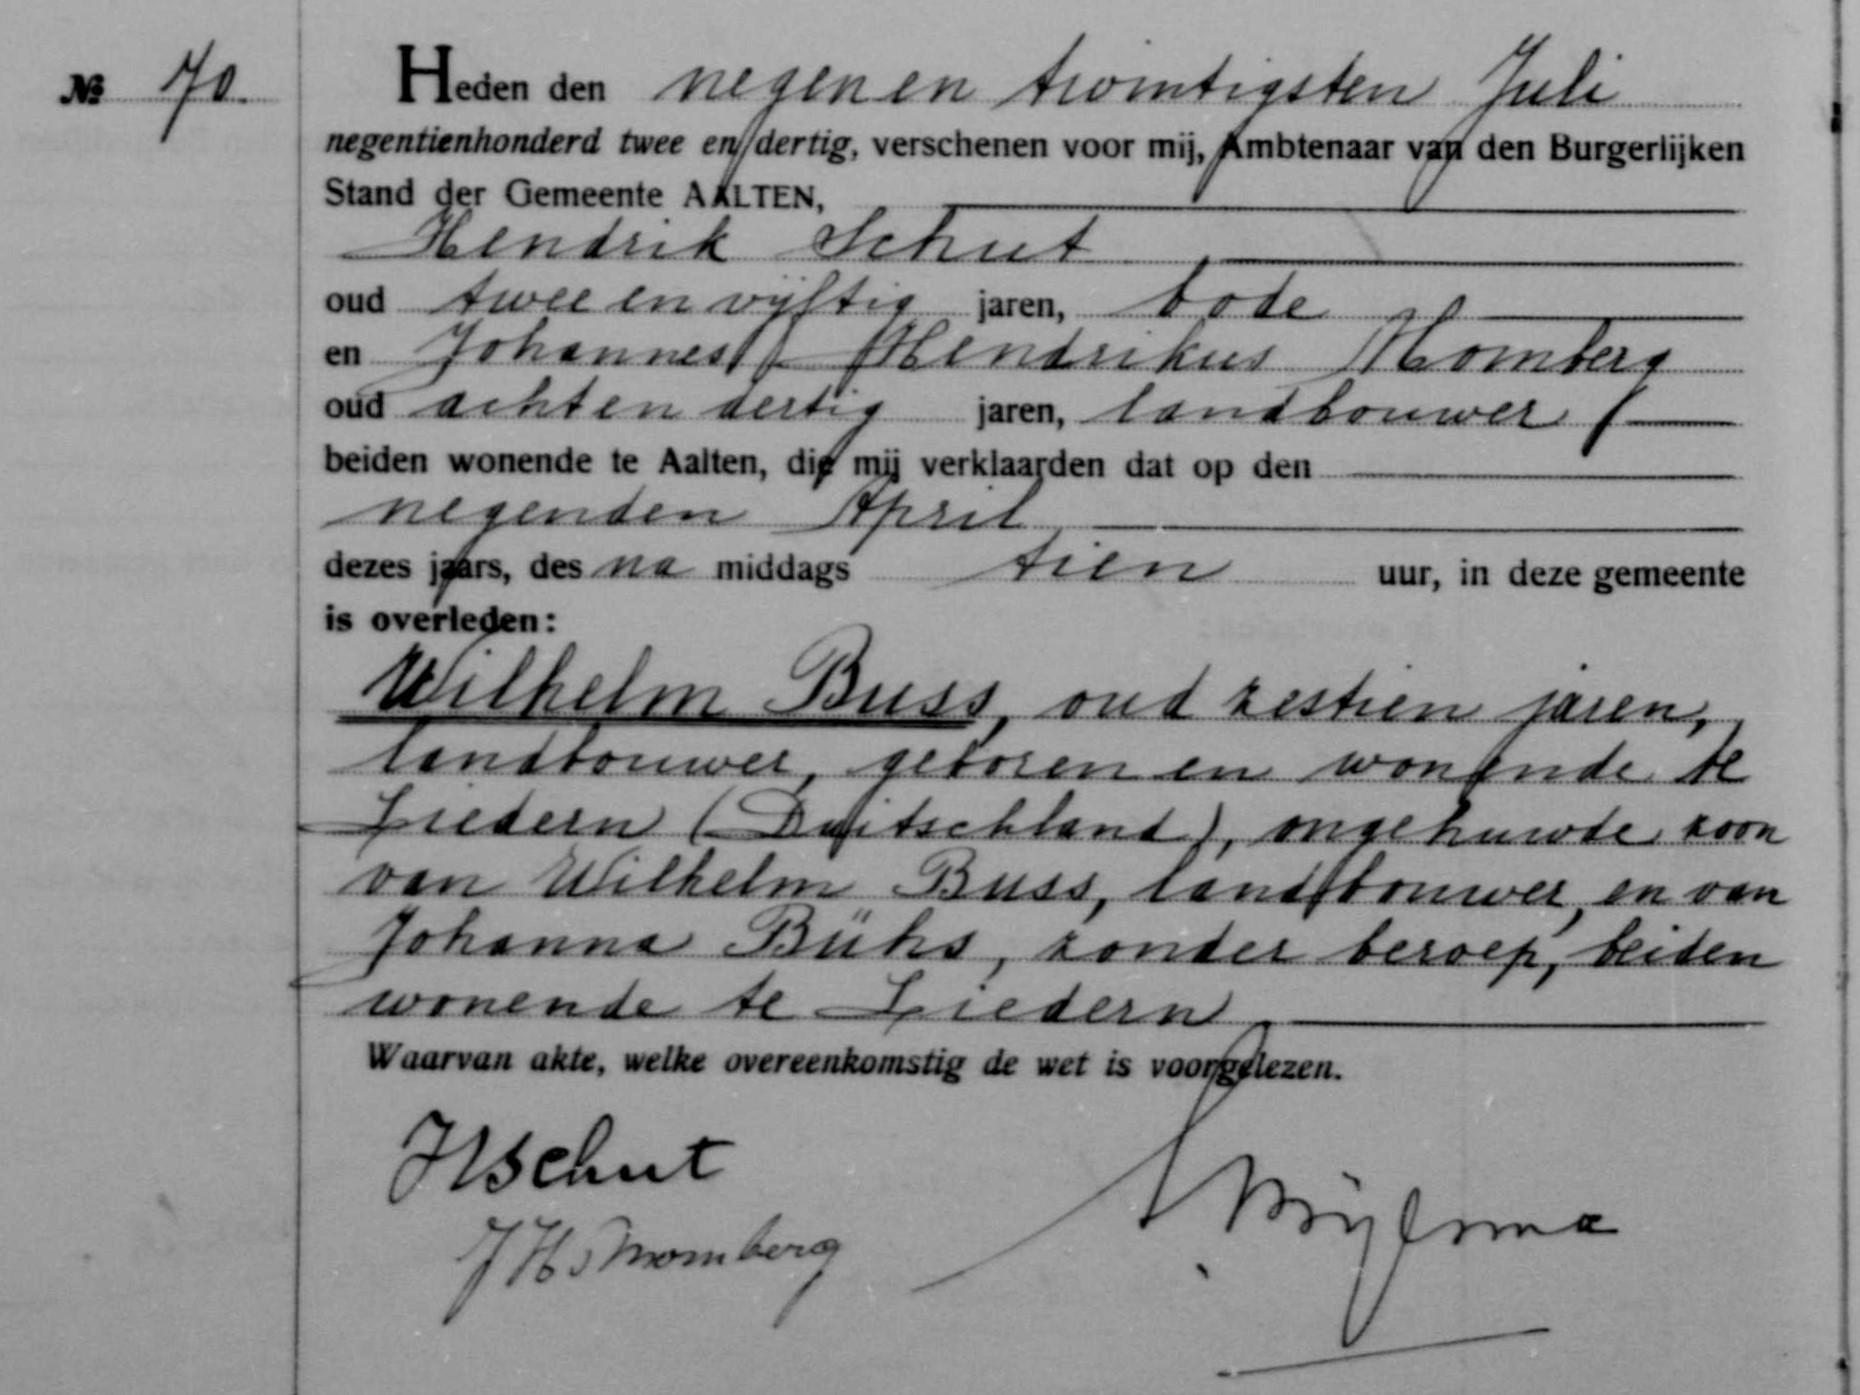 № 70.
Heden den negen en twintigsten Juli
negentienhonderd twee en dertig, verschenen voor mij, Ambtenaar van den Burgerlijken
Stand der Gemeente AALTEN,
Hendrik Schut
oud twee en vijftig jaren, bode
en Johannes Hendrikus Momberg
oud acht en dertig jaren, landbouwer
beiden wonende te Aalten, die mij verklaarden dat op den
negenden April
dezes jaars, des na middags tien uur, in deze gemeente
is overleden:
Wilhelm Buss, oud zestien jaren,
landbouwer, geboren en wonende te
Liedern (Duitschland), ongehuwde zoon
van Wilhelm Buss, landbouwer, en van
Johanna Bühs, zonder beroep, beiden
wonende te Liedern
Waarvan akte, welke overeenkomstig de wet is voorgelezen.
HSchut
JH Momberg